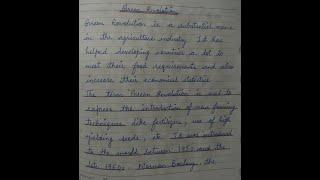 Green Revolution
Green Revolution is a substantial name
in the agriculture industry. It has
helped developing countries a lot to
meet their food requirements and also
increase their economical statistics
The term "Green Revolution" is used to
express the introduction of new farming
techniques like fertilizer, use of high
yielding seeds, etc. It was introduced
to the world between 1950 and the
late 1960s. Norman Borlaug, the